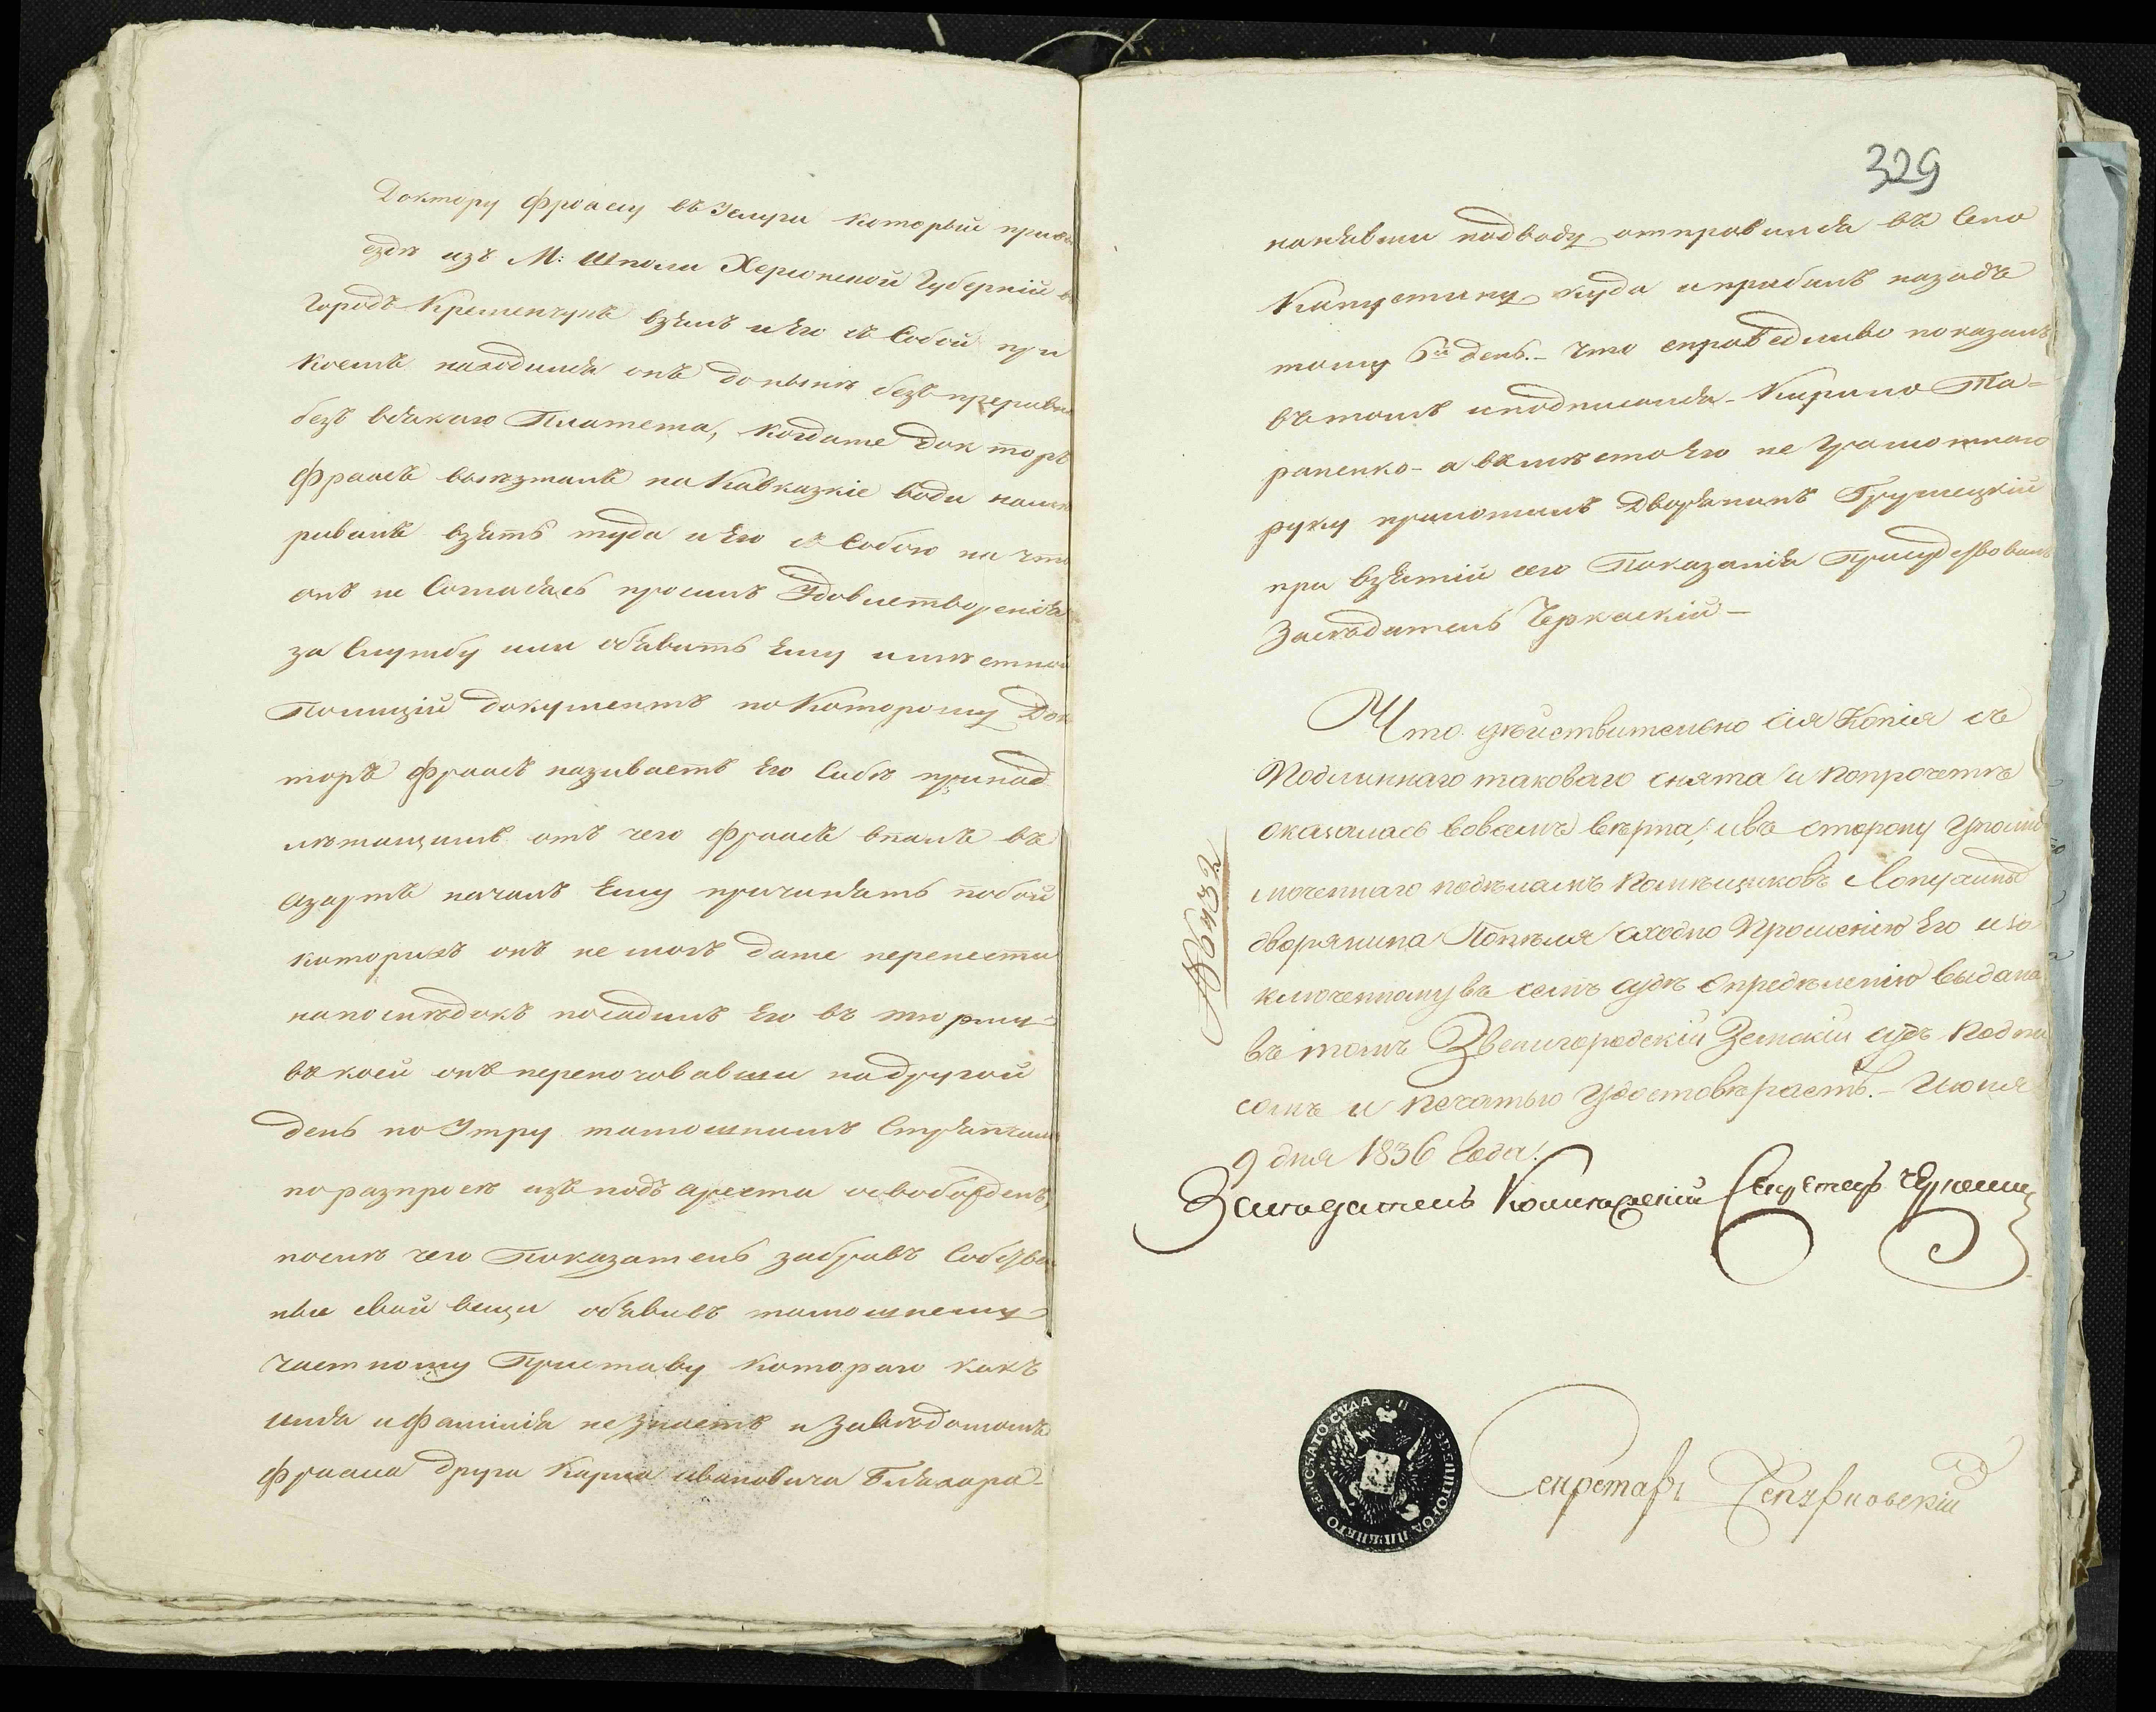 Доктору Фраасу въ Услуги который при въ
ездѣ изъ М: Шполи Херсонской Губерній в
городъ Кременчукъ взялъ и Его съ Собой при
коемъ находился онъ до нынѣ безъ прерывно
безъ всякаго Платежа, когдаже Докторъ
Фраасъ выезжалъ на Кавказкіе води намѣ
ривалъ взять туда и Его съ Собою на что
онъ не Согласясь просилъ Удовлетворенія
за Службу или объявить Ему и мѣстной
Полиціи документъ по Которому Док
торъ Фраасъ називаетъ Его Сибѣ принад
лежащимъ отъ чего Фраасъ впалъ въ
азартъ началъ Ему причинять побои
которихъ онъ не могъ даже перенести
напослѣдокъ посадилъ Его въ тюрму
въ коей онъ переночовавши надругой
день по Утру тамошнимъ Стряпчимъ
поразпросѣ изъ подъ ареста освобожденъ,
послѣ чего Показатель забравъ Собстве
ные свои вещи объявивъ тамошнему
частному Приставу котораго какъ
имя и Фамилія не знаетъ и Завѣдомомъ
Фрааса друга Карла ивановича
нанявши подводу отправился въ Село
Капустину куда и прибилъ назадъ
тому 6й день. - Что справедливо показалъ
въ томъ и подписался - Кирило Та=
раненко - а вмѣсто Его не Грамотнаго
руку приложилъ Дворянинъ Грушецкій
при взятіи сего Показанія Присудствовалъ
Засѣдатель Черкаскій —
329
Что дѣйствительно сія Копія съ
Подлиннаго таковаго снята и попрочетѣ
оказалась вовсемъ вѣрна, ивъ сторону Уполно
моченнаго подѣламъ Помѣщиковъ Лопухиныхъ
дворянина Попеля сходно Прошенію Его и за
ключенному въ семъ судѣ Определенію выдана
въ томъ Звенигородскій Земскій судъ Подпи
сомъ и печатью Удостовѣряетъ. - Июня
9 дня 1836 Года.
№ 6432
Засѣдатель Секретарь
Секретарь
ЗВЕНИГОРОДСКАГО ЗЕМСКАГО СУДА